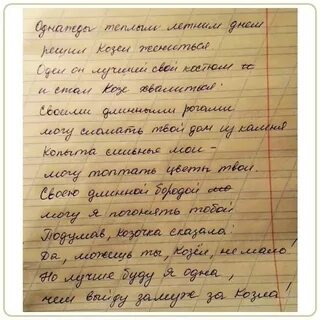 Однажды тёплым летним днем
решил Козел жениться.
Одел он лучший свой костюм
и стал Козе хвалиться:
Своими длинными рогами
могу сломать твой дом из камня
Копыта сильные мои -
могу топтать цветы твои.
Своею длинной бородой
могу я погонять тобой
Подумав, козочка сказала:
Да, можешь ты, Козёл, не мало!
Но лучше буду я одна,
чем выйду замуж за Козла!